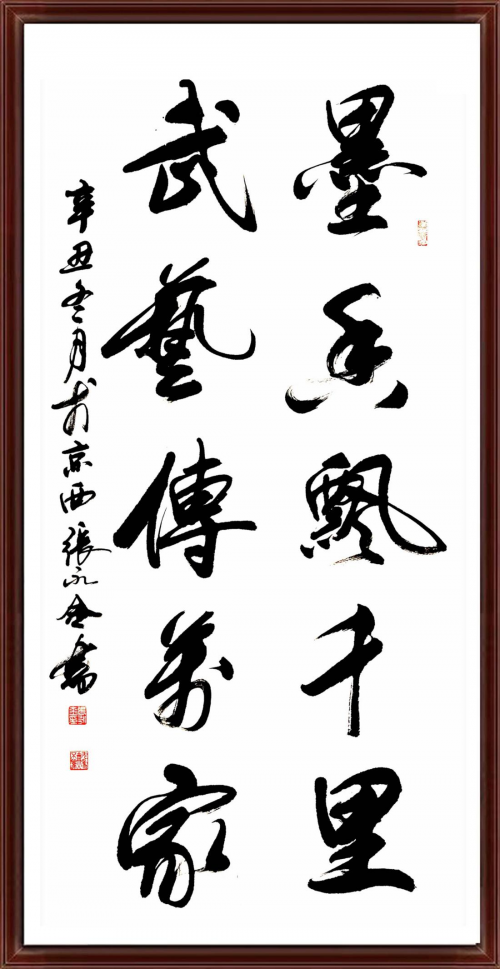 墨香飘千里
武藝傳萬家
辛丑冬月於京西張永全書